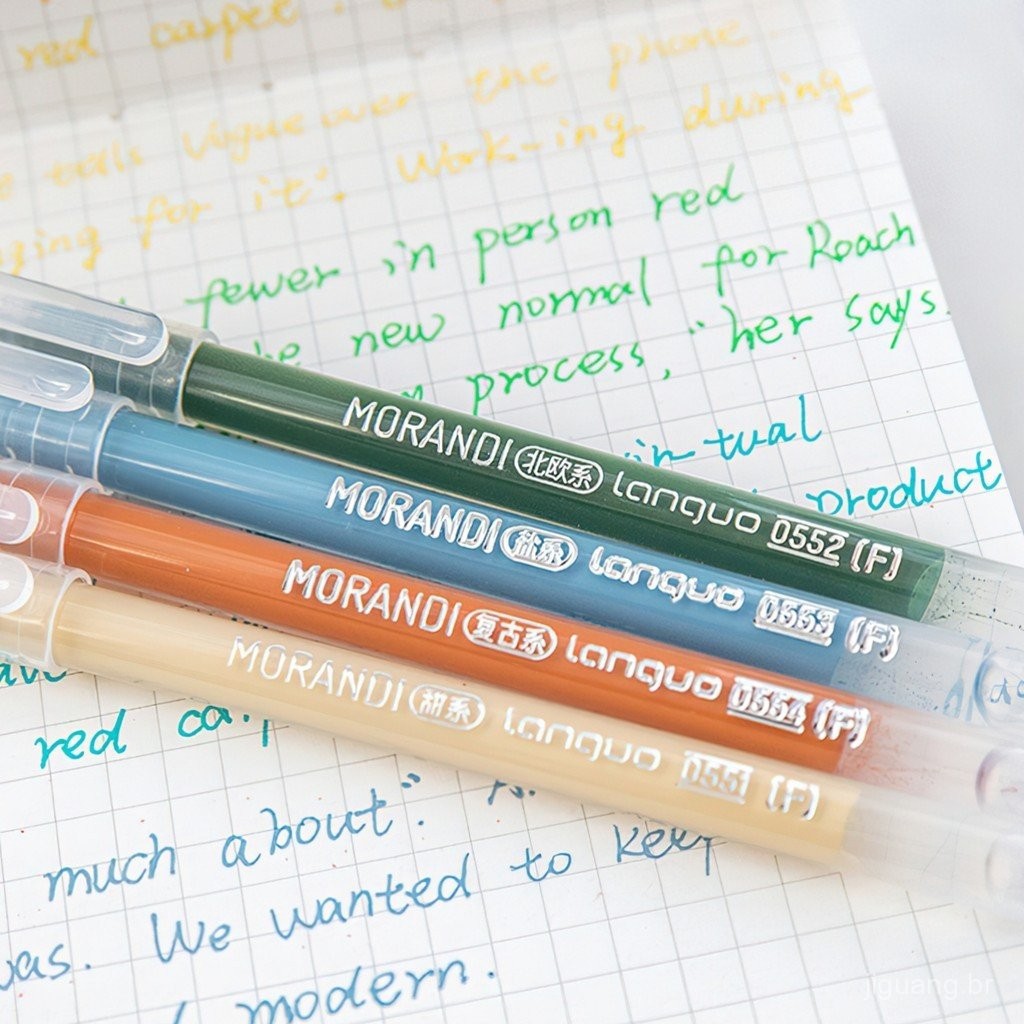 red carpet.
tells Vogue over the phone
for it". Work-ing during
fewer in person red
new normal for Roach
process, "her says.
in-tual
product
MORANDI 北欧系 languo 0552 (F)
MORANDI 盐系 languo 0553 (F)
MORANDI 复古系 languo 0554 (F)
MORANDI 甜系 languo 0551 (F)
red
much about".
was. We wanted to keep
modern.
jiguang.br